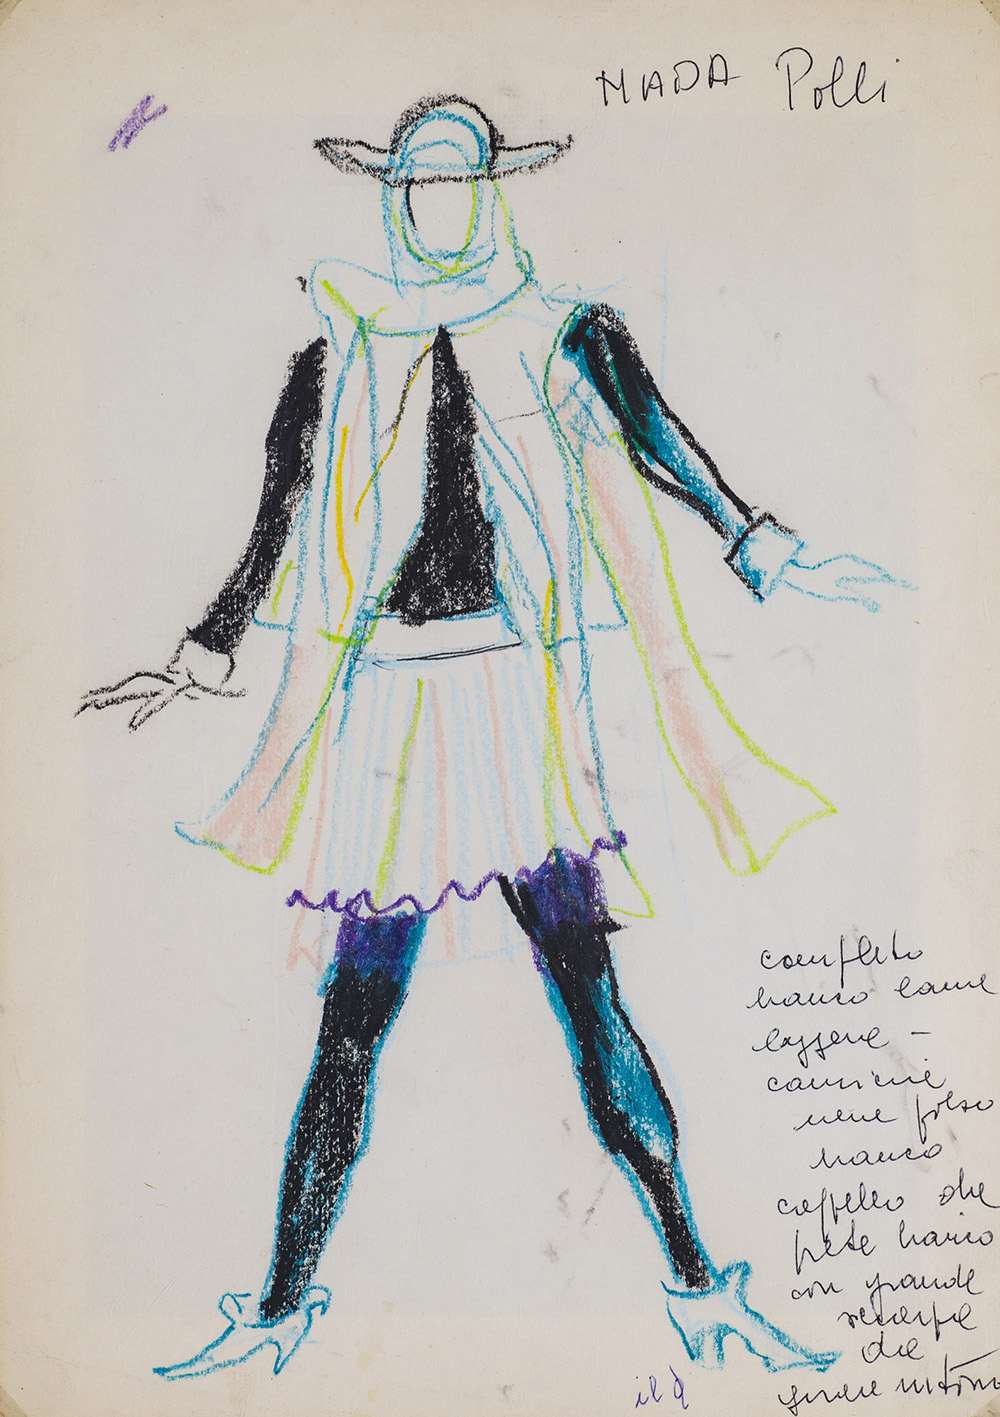 MADA Polli
completo
bianco lana
leggera -
camicie
nere polso
bianco
cappello da
prete bianco
con grande
sciarpa
che